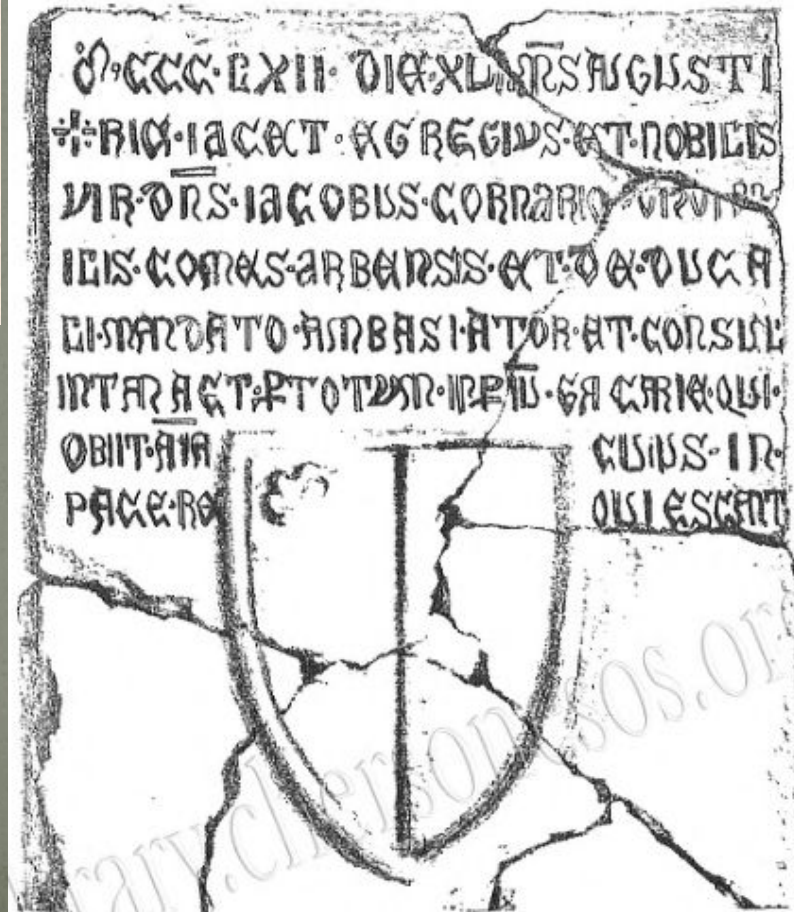 M·CCC·LXII· DIE·XU MS AUGUSTI
✣HIC·IACET·EGREGIUS·ET·NOBILIS
VIR·DNS·IACOBUS·CORNARIO
ILIS·COMES·ARBENSIS·ET·DE·DUCA
LI·MANDATO·AMBASIATOR·ET·CONSUL
INTANA ET·PTOTUM·INPIU·GACARIE·QUI·
OBIIT·AIA CUIUS·IN·
PACE·RE QUIESCENT
library.chersonesos.org